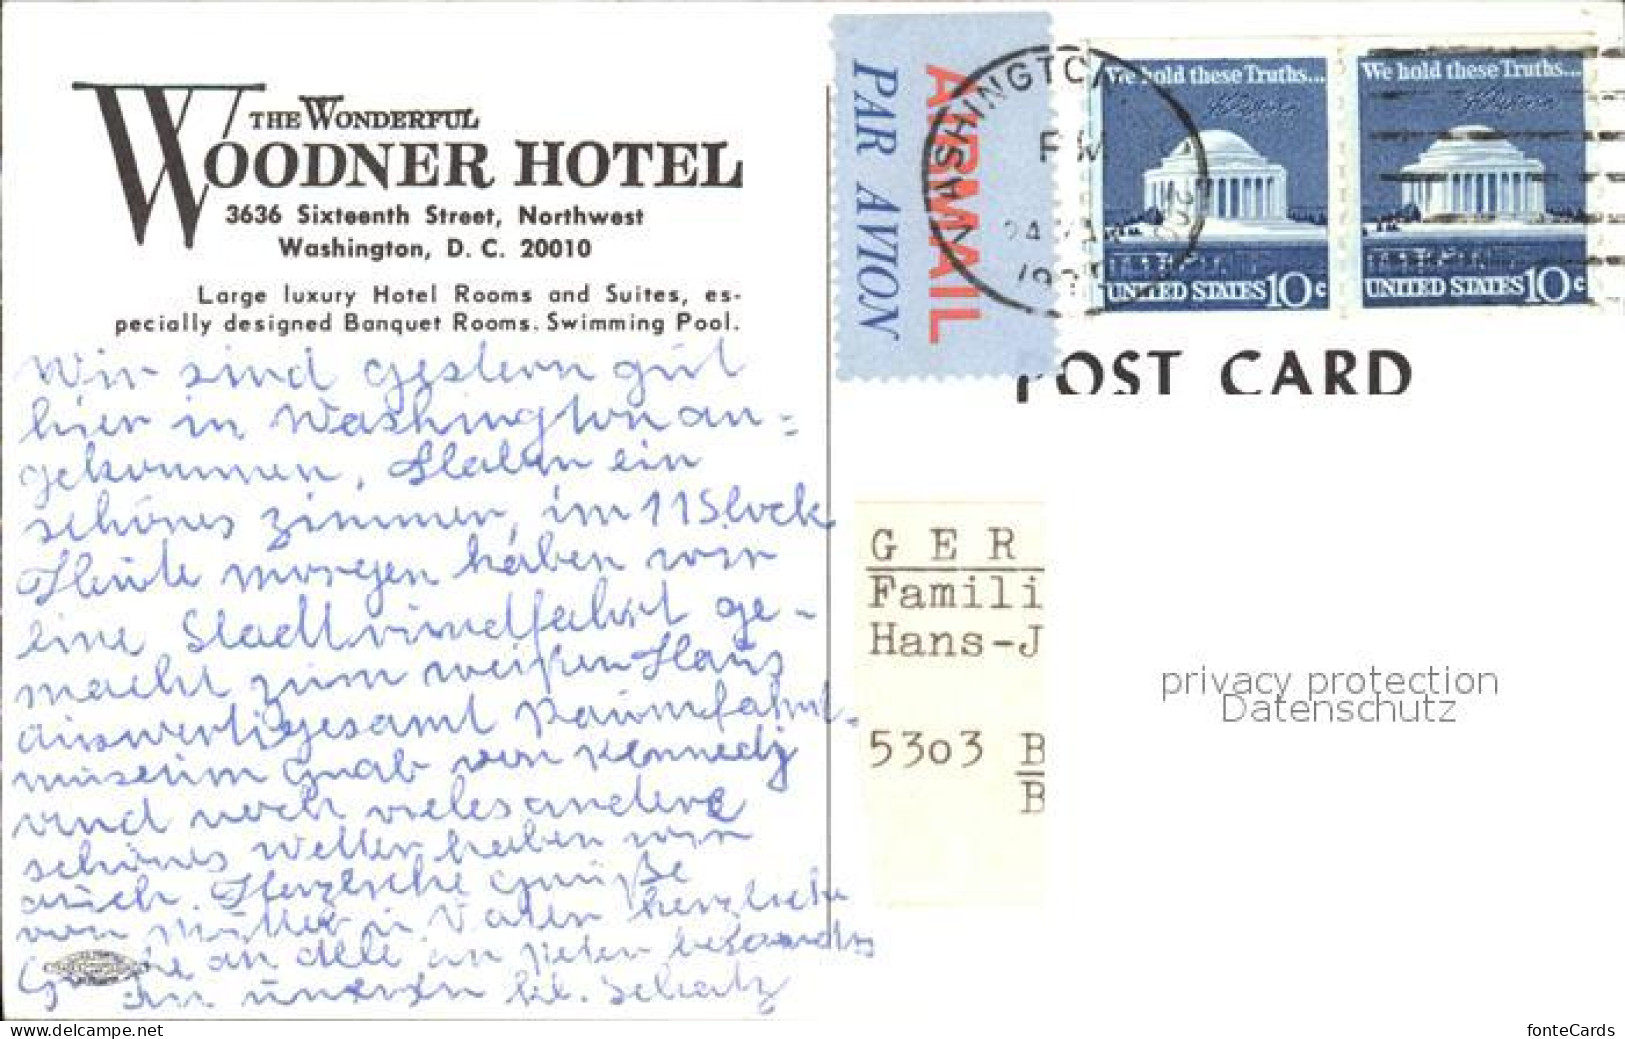 THE WONDERFUL
WOODNER HOTEL
3636 Sixteenth Street, Northwest
Washington, D. C. 20010
Large luxury Hotel Rooms and Suites, es-
pecially designed Banquet Rooms. Swimming Pool.
Wir sind gestern gut
hier in Washington an=
gekommen, Haben ein
schönes zimmer, im 11 Stock
Heute morgen haben wir
eine Stadtrundfahrt ge-
macht zum weißen Haus
auswertigesamt Raumfahrt-
museum Grab von Kennedy
und noch vieles andere
schönes Wetter haben wir
auch. Herzliche Grüße
von Mutter u Vater herzliche
Grüße an alle an Peter besonders
unseren kl. Schatz
AIRMAIL
PAR AVION
WASHINGTON
PM
24
We hold these Truths...
UNITED STATES 10c
We hold these Truths...
UNITED STATES 10c
POST CARD
GER
Famili
Hans-J
53o3 B
B
privacy protection
Datenschutz
www.delcampe.net
fonteCards